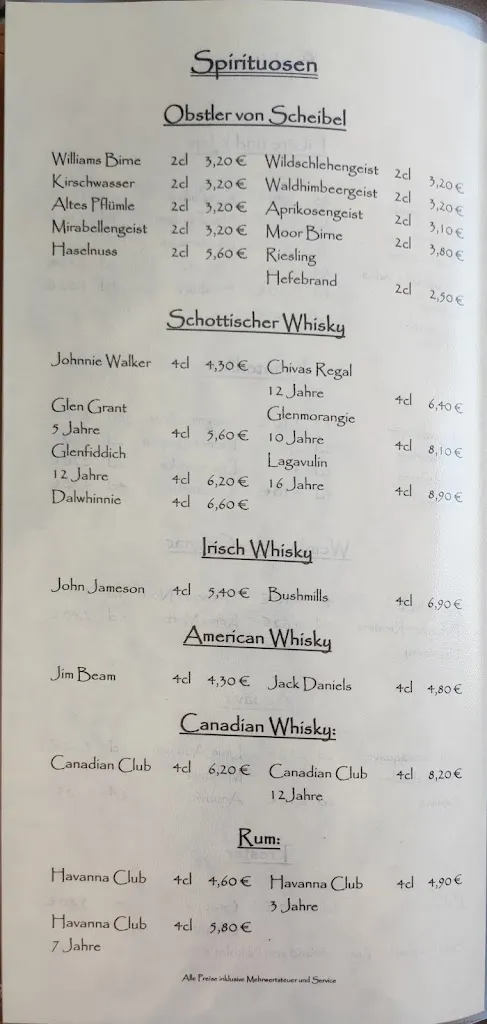 Spirituosen
Obstler von Scheibel
Williams Birne 2cl 3,20 € Wildschlehengeist 2cl 3,20 €
Kirschwasser 2cl 3,20 € Waldhimbeergeist 2cl 3,20 €
Altes Pflümle 2cl 3,20 € Aprikosengeist 2cl 3,10 €
Mirabellengeist 2cl 3,20 € Moor Birne 2cl 3,80 €
Haselnuss 2cl 5,60 € Riesling
Hefebrand 2cl 2,50 €
Schottischer Whisky
Johnnie Walker 4cl 4,30 € Chivas Regal
12 Jahre 4cl 6,40 €
Glen Grant Glenmorangie
5 Jahre 4cl 5,60 € 10 Jahre 4cl 8,10 €
Glenfiddich Lagavulin
12 Jahre 4cl 6,20 € 16 Jahre 4cl 8,90 €
Dalwhinnie 4cl 6,60 €
Irisch Whisky
John Jameson 4cl 5,40 € Bushmills 4cl 6,90 €
American Whisky
Jim Beam 4cl 4,30 € Jack Daniels 4cl 4,80 €
Canadian Whisky:
Canadian Club 4cl 6,20 € Canadian Club 4cl 8,20 €
12 Jahre
Rum:
Havanna Club 4cl 4,60 € Havanna Club 4cl 4,90 €
3 Jahre
Havanna Club 4cl 5,80 €
7 Jahre
Alle Preise inklusive Mehrwertsteuer und Service